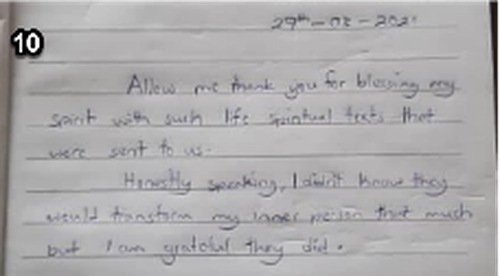 10
29th-02-2021
Allow me thank you for blessing my
spirit with such life spiritual texts that
were sent to us.
Honestly speaking, I didn't know they
would transform my inner person that much
but I am grateful they did.